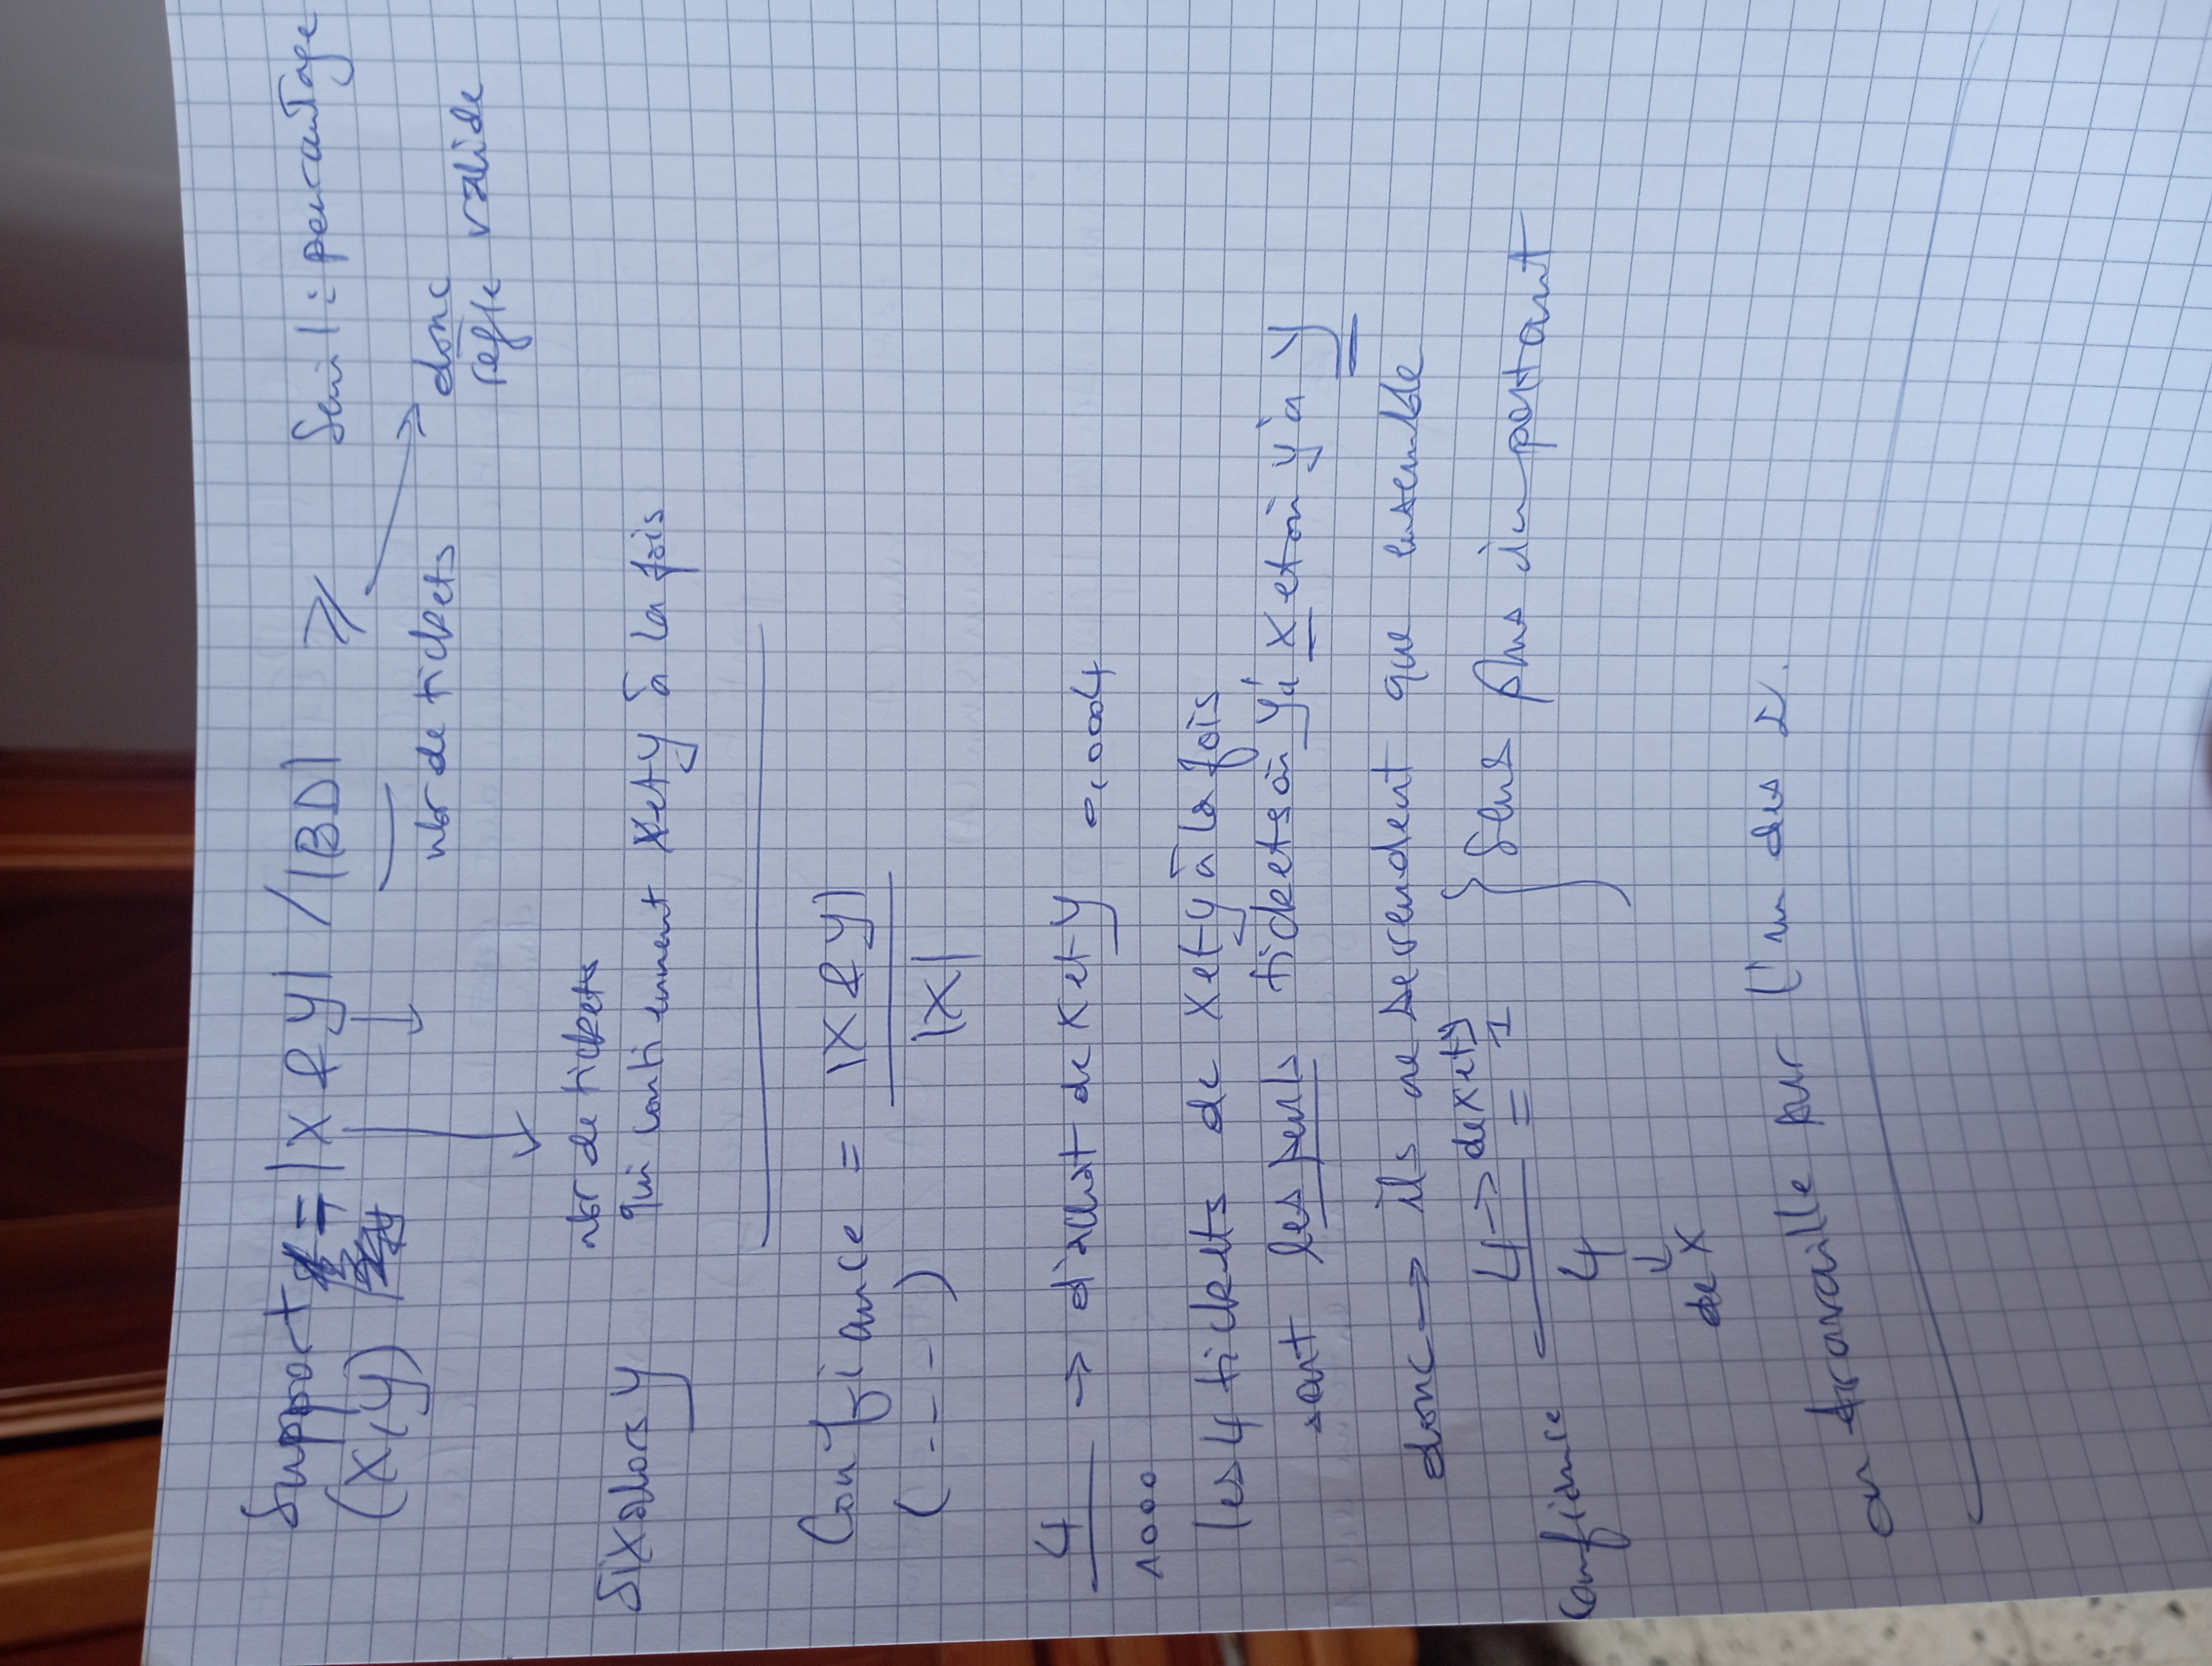 Support = |X & y| / |BD| ⩾ Seuil : pourcentage
(X, y)
nbr de tickets donc
règle valide
nbr de tickets
Si X alors y qui contiennent X et y à la fois
Confiance = |X & y|
(---) |X|
4 → d'achat de X et y 0,0004
1000
les 4 tickets de X et y à la fois
sont les seuls tickets où y'a X et où y a y
donc → ils ne se vendent que ensemble
4 → de X et y
confiance = 1 } Sens plus important
4
↓
de X
on travaille sur l'un des 2.